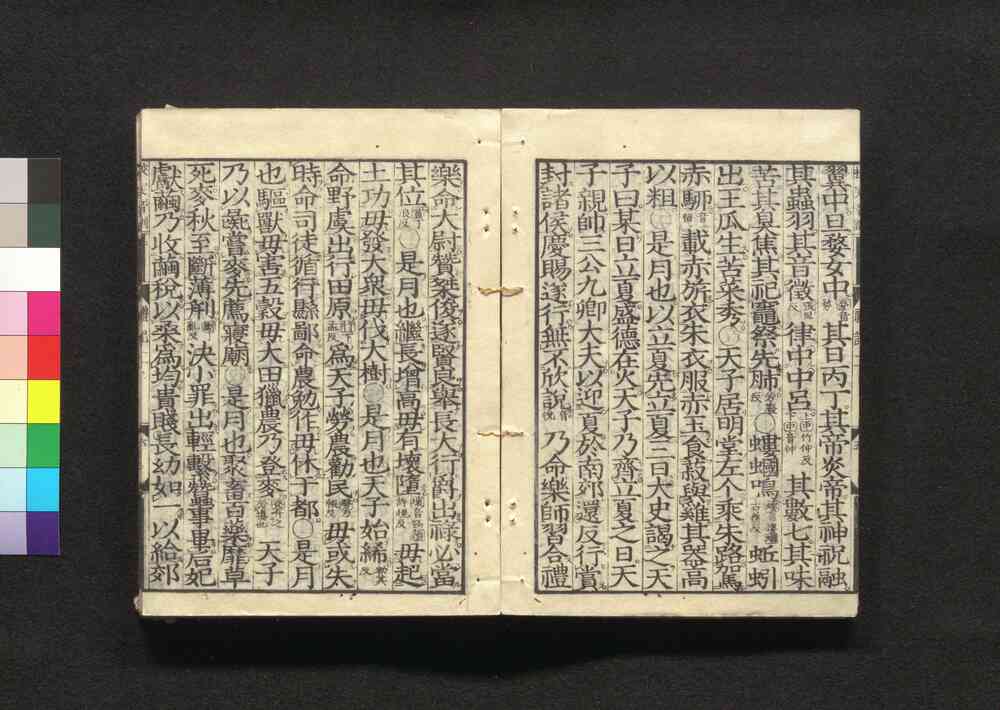 翼中旦婺女中其日丙丁其帝炎帝其神祝融
其蟲羽其音徵律中中呂其數七其味
苦其臭焦其祀竈祭先肺螻蟈鳴蚯蚓
出王瓜生苦菜秀○天子居明堂左个乘朱路駕
赤駵載赤旂衣朱衣服赤玉食菽與雞其器高
以粗○是月也以立夏先立夏三日大史謁之天
子曰某日立夏盛德在火天子乃齊立夏之日天
子親帥三公九卿大夫以迎夏於南郊還反行賞
封諸侯慶賜遂行無不欣說乃命樂師習合禮
樂命大尉贊桀俊遂賢良舉長大行爵出祿必當
其位○是月也繼長增高毋有壞墮毋起
土功毋發大衆毋伐大樹○是月也天子始絺
命野虞出行田原爲天子勞農勸民毋或失
時命司徒循行縣鄙命農勉作毋休于都○是月
也驅獸毋害五穀毋大田獵農乃登麥天子
乃以彘嘗麥先薦寢廟○是月也聚畜百藥靡草
死麥秋至斷薄刑決小罪出輕繫蠶事畢后妃
獻繭乃收繭稅以桑爲均貴賤長幼如一以給郊